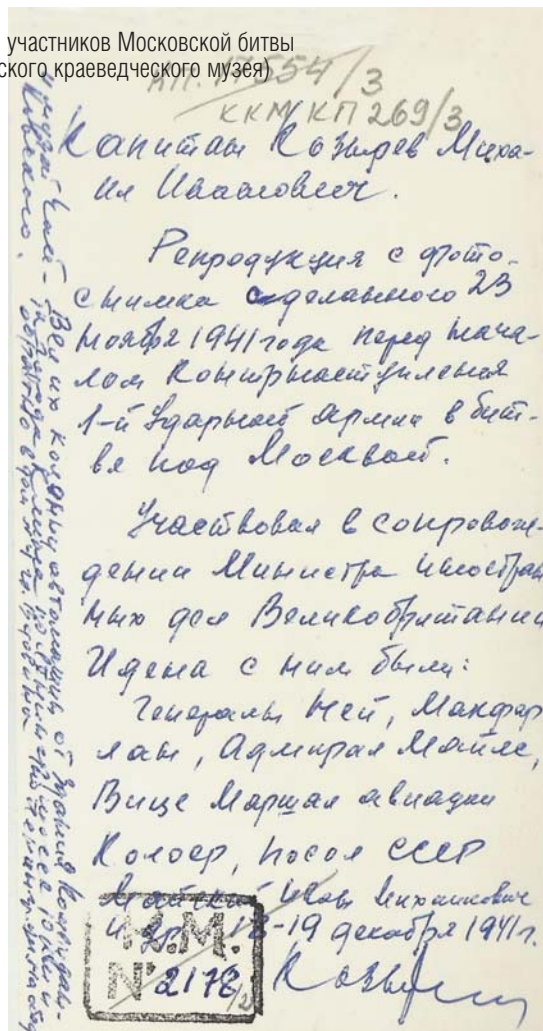 участников Московской битвы
ского краеведческого музея)
КП. 17554/3
ККМ КП 269/3
Капитан Козырев Миха-
ил Иванович.
Репродукция с фото-
снимка сделанного 23
ноября 1941 года перед нача-
лом контрнаступления
1-й Ударной армии в бит-
ве под Москвой.
Участвовал в сопровож-
дении Министра иностран
ных дел Великобритании
Идена с ним были:
Генералы Ней, Макфар
лан, Адмирал Майлс,
Вице Маршал авиации
Колоер, посол СССР
Майский Иван Михайлович
18-19 декабря 1941 г.
М.М.
№ 2178/2
Козырев
Вел их колонну автомашин от здания